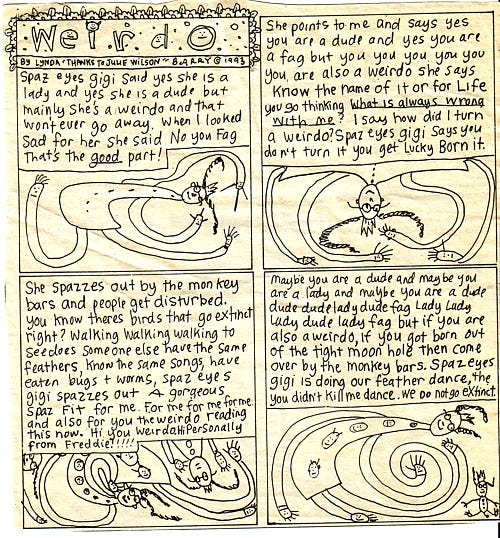 Weirdo
By LYNDA "THANKS TO JULIE WILSON" BARRY © 1993
Spaz eyes gigi said yes she is a
lady and yes she is a dude but
mainly she's a weirdo and that
won't ever go away. When I looked
Sad for her she said No you Fag
That's the good part!
She points to me and says yes
you are a dude and yes you are
a fag but you you you you you
you, are also a weirdo she says
Know the name of it or for Life
you go thinking what is always wrong
with me? I say how did I turn
a weirdo? Spaz eyes gigi says you
don't turn it you get Lucky Born it.
She spazzes out by the monkey
bars and people get disturbed.
You know theres birds that go extinct
right? Walking walking walking to
see does someone else have the same
feathers, know the same songs, have
eaten bugs + worms, spaz eyes
gigi spazzes out A gorgeous
Spaz Fit for me. For me for me for me
and also for you the weirdo reading
this now. Hi you weirda. Hi Personally
from Freddie!!!!!
Maybe you are a dude and maybe you
are a lady and maybe you are a dude
dude dude lady dude fag Lady Lady
Lady dude lady fag but if you are
also a weirdo, if you got born out
of the tight moon hole then come
over by the monkey bars. Spaz eyes
gigi is doing our feather dance, the
you didn't kill me dance. We do not go eXtinct.